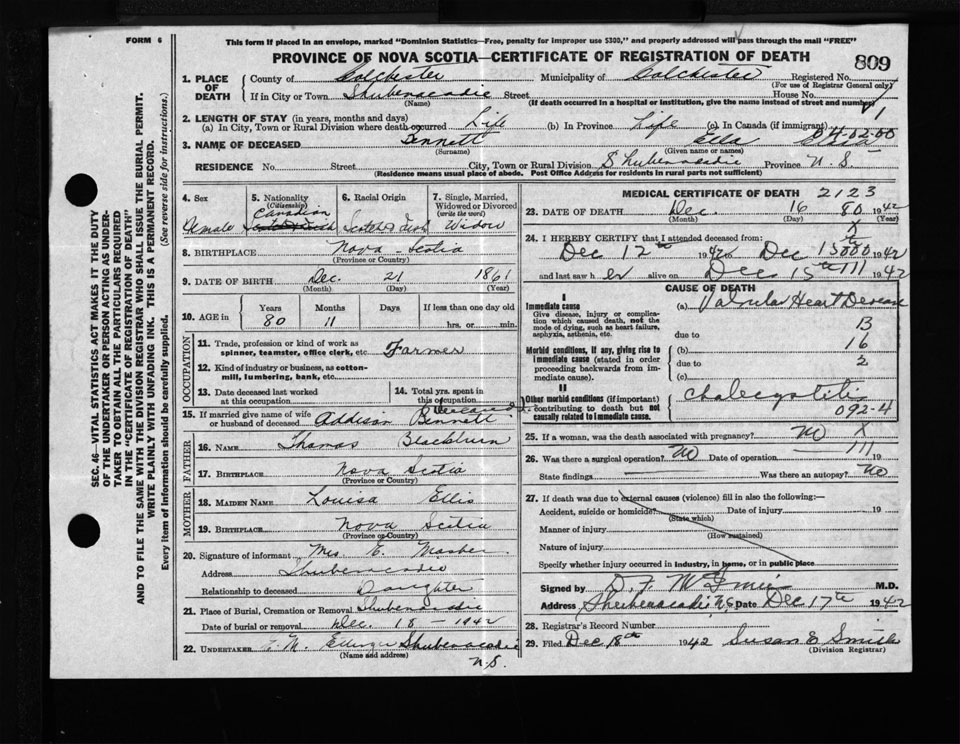 FORM 6
This form if placed in an envelope, marked "Dominion Statistics—Free, penalty for improper use $300," and properly addressed will pass through the mail "FREE"
PROVINCE OF NOVA SCOTIA—CERTIFICATE OF REGISTRATION OF DEATH
809
1. PLACE OF DEATH County of Colchester Municipality of Colchester Registered No.
(For use of Registrar General only)
If in City or Town Shubenacadie Street House No.
(Name) (If death occurred in a hospital or institution, give the name instead of street and number)
2. LENGTH OF STAY (in years, months and days)
(a) In City, Town or Rural Division where death occurred Life (b) In Province Life (c) In Canada (if immigrant)
04-02-00
3. NAME OF DECEASED Bennett Ella
(Surname) (Given name or names)
RESIDENCE No. Street City, Town or Rural Division Shubenacadie Province N.S.
(Residence means usual place of abode. Post Office Address for residents in rural parts not sufficient)
4. Sex Female
5. Nationality (Citizenship) Canadian
6. Racial Origin Scotch & Irish
7. Single, Married, Widowed or Divorced (write the word) Widow
8. BIRTHPLACE Nova Scotia
(Province or Country)
9. DATE OF BIRTH Dec. 21 1861
(Month) (Day) (Year)
10. AGE in Years Months Days If less than one day old
80 11 hrs. or min.
OCCUPATION
11. Trade, profession or kind of work as spinner, teamster, office clerk, etc. Farmer
12. Kind of industry or business, as cotton-mill, lumbering, bank, etc.
13. Date deceased last worked at this occupation
14. Total yrs. spent in this occupation
15. If married give name of wife or husband of deceased Addison Bennett
FATHER
16. NAME Thomas Blackburn
17. BIRTHPLACE Nova Scotia
(Province or Country)
MOTHER
18. MAIDEN NAME Louisa Ellis
19. BIRTHPLACE Nova Scotia
(Province or Country)
20. Signature of informant Mrs. E.
Address Shubenacadie
Relationship to deceased Daughter
21. Place of Burial, Cremation or Removal Shubenacadie
Date of burial or removal Dec. 18 - 1942
22. UNDERTAKER Shubenacadie
(Name and address) N.S.
MEDICAL CERTIFICATE OF DEATH 2123
23. DATE OF DEATH Dec. 16 80 1942
(Month) (Day) (Year)
24. I HEREBY CERTIFY that I attended deceased from:
Dec 12th 1942 to Dec 15 1942
and last saw her alive on Dec 15th 1942
CAUSE OF DEATH
I
Immediate cause
Give disease, injury or complication which caused death, not the mode of dying, such as heart failure, asphyxia, asthenia, etc.
(a) Valvular Heart Disease
due to
Morbid conditions, if any, giving rise to immediate cause (stated in order proceeding backwards from immediate cause).
(b)
due to
(c)
B
16
2
II
Other morbid conditions (if important) contributing to death but not causally related to immediate cause.
092-4
25. If a woman, was the death associated with pregnancy? No X
26. Was there a surgical operation? No Date of operation
State findings Was there an autopsy? No
27. If death was due to external causes (violence) fill in also the following:
Accident, suicide or homicide? Date of injury 19
(State which)
Manner of injury
(How sustained)
Nature of injury
Specify whether injury occurred in industry, in home, or in public place
Signed by M.D.
Address Shubenacadie N.S. Date Dec 17th 1942
28. Registrar's Record Number
29. Filed Dec 18th 1942 Susan E Smith
(Division Registrar)
SEC. 46—VITAL STATISTICS ACT MAKES IT THE DUTY OF THE UNDERTAKER OR PERSON ACTING AS UNDERTAKER TO OBTAIN ALL THE PARTICULARS REQUIRED IN THE "CERTIFICATE OF REGISTRATION OF DEATH" AND TO FILE THE SAME WITH THE DIVISION REGISTRAR WHO SHALL ISSUE THE BURIAL PERMIT.
WRITE PLAINLY WITH UNFADING INK. THIS IS A PERMANENT RECORD.
Every item of information should be carefully supplied. (See reverse side for instructions.)